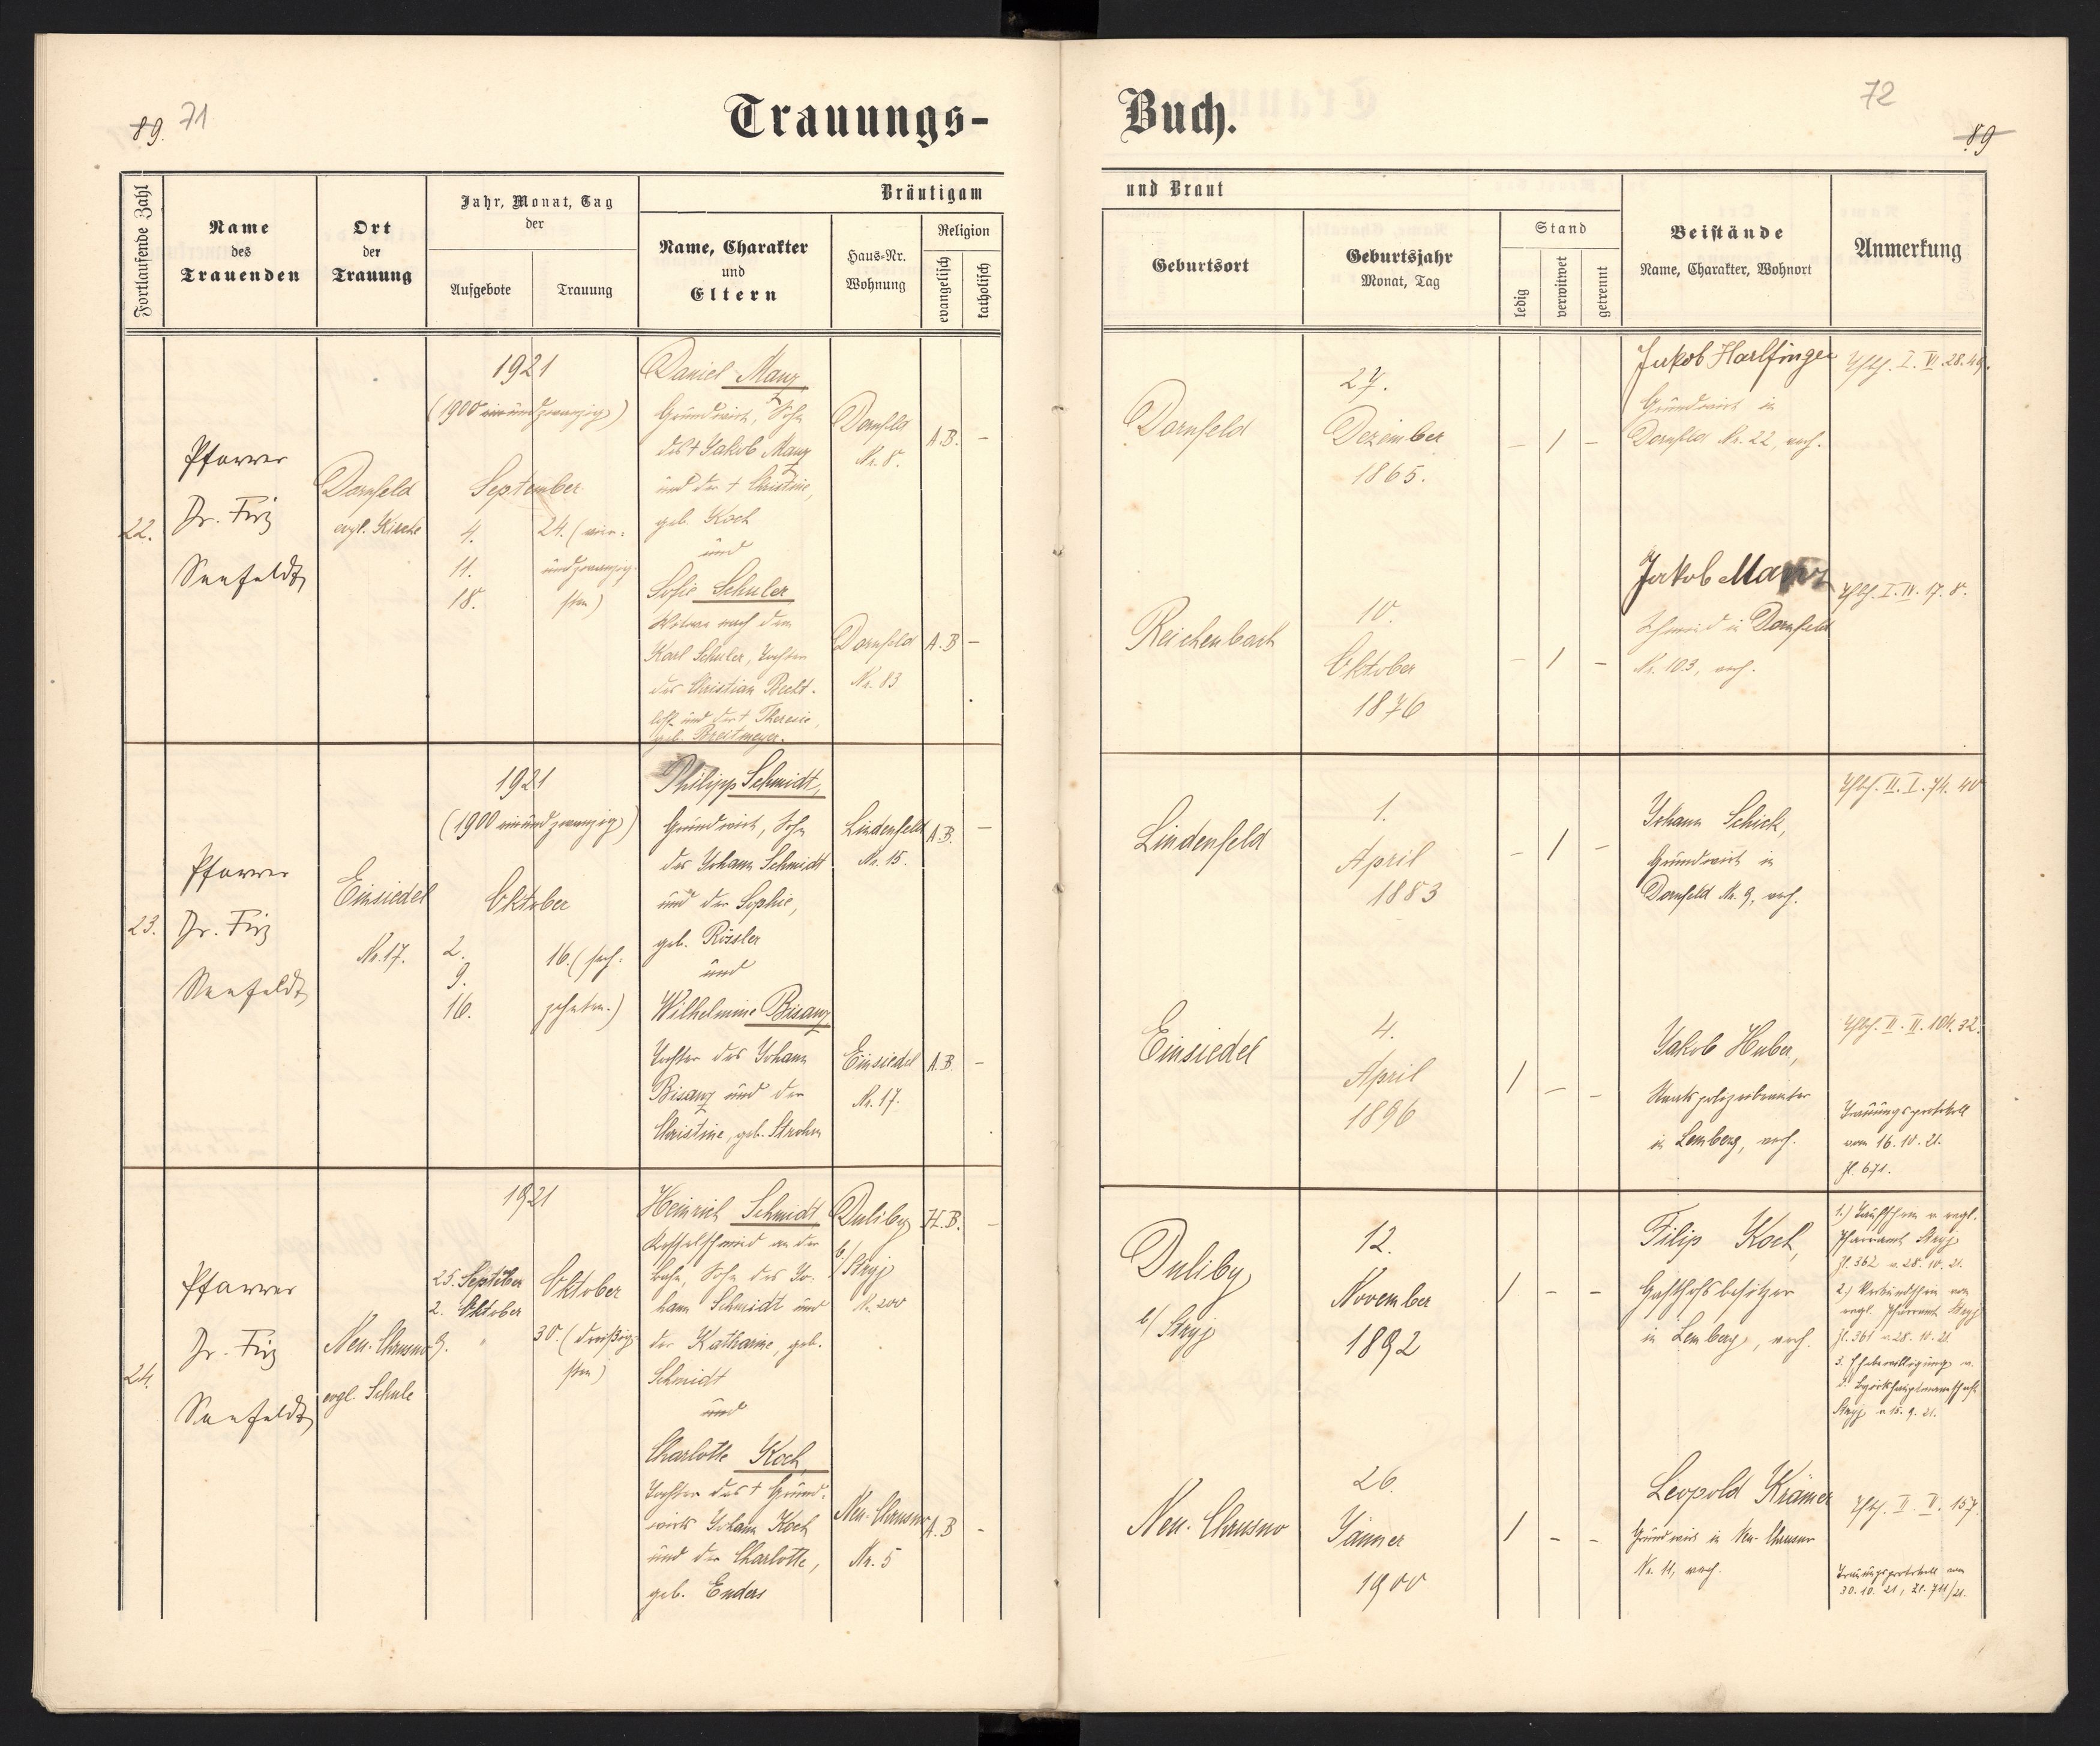 89. 71
Trauungs-
Fortlaufende Zahl
Name
des
Trauenden
Ort
der
Trauung
Jahr, Monat, Tag
der
Aufgebote
Trauung
Bräutigam
Name, Charakter
und
Eltern
Haus-Nr.
Wohnung
Religion
evangelisch
katholisch
22.
Pfarrer
Dr. Friz
Seefeldt
Dornfeld
evgl. Kirche
1921
(1900 einundzwanzig)
September
4.
11.
18.
24. (vier-
undzwanzig-
sten)
Daniel Manz
Grundwirt, Sohn
des † Jakob Manz
und der † Christine,
geb. Koch
und
Sofie Schuler
Witwe nach dem
Karl Schuler, Tochter
des Christian Recht-
und der † Theresie,
geb. Breitmeyer.
Dornfeld
Nr. 8.
A.B. -
Dornfeld
Nr. 83
A.B -
23.
Pfarrer
Dr. Friz
Seefeldt
Einsiedel
Nr. 17.
1921
(1900 einundzwanzig)
Oktober
2.
9.
16.
16. (sech-
zehnten.)
Philipp Schmidt,
Grundwirt, Sohn
des Johann Schmidt
und der Sophie,
geb. Rössler
und
Wilhelmine Bisanz
Tochter des Johann
Bisanz und der
Christine, geb. Strohm
Lindenfeld
Nr. 15.
A.B. -
Einsiedel
Nr. 17.
A.B. -
24.
Pfarrer
Dr. Friz
Seefeldt
Neu-Chrusno
evgl. Schule
1921
25. September
2. Oktober
9. "
Oktober
30. (dreißig-
sten)
Heinrich Schmidt
Kesselschmied an der
Bahn, Sohn des Jo-
hann Schmidt und
der Katharine, geb.
Schmidt
und
Charlotte Koch,
Tochter des † Grund-
wirts Johann Koch
und der Charlotte,
geb. Enders
Duliby
b/ Stryj
Nr. 200
H.B. -
Neu-Chrusno
Nr. 5
A.B -
72
89
Buch.
und Braut
Geburtsort
Geburtsjahr
Monat, Tag
Stand
ledig
verwitwet
getrennt
Beistände
Name, Charakter, Wohnort
Anmerkung
Dornfeld
27.
Dezember
1865.
- / -
Jakob Harlfinger
Grundwirt in
Dornfeld Nr. 22, evg.
I. VI. 28. 49.
Reichenbach
10.
Oktober
1876
- / -
Jakob Manz
Schmied in Dornfeld
Nr. 103, evg.
I. IV. 17. 8.
Lindenfeld
1.
April
1883
- / -
Johann Schick,
Grundwirt in
Dornfeld Nr. 9, evg.
II. I. 74. 40
Einsiedel
4.
April
1896
/ - -
Jakob Huber,
Staatspolizeibeamter
in Lemberg, evg.
II. II. 104. 32.
Trauungsprotokoll
vom 16. 10. 21.
Zl. 671.
Duliby
b/ Stryj
12.
November
1892
/ - -
Filip Koch,
Gasthofsbesitzer
in Lemberg, evg.
1.) Taufschein v. evgl.
Pfarramt Stryj
Zl. 362 v. 28. 10. 21.
2.) Verkündschein vom
evgl. Pfarramt Stryj
Zl. 361 v. 28. 10. 21
3. Ehebewilligung v.
d. Bezirkshauptmannschaft
Stryj v. 15. 9. 21.
Neu-Chrusno
26.
Jänner
1900
/ - -
Leopold Krämer
Grundwirt in Neu-Chrusno
Nr. 11, evg.
II. V. 157.
Trauungsprotokoll vom
30. 10. 21, Zl. 711/21.